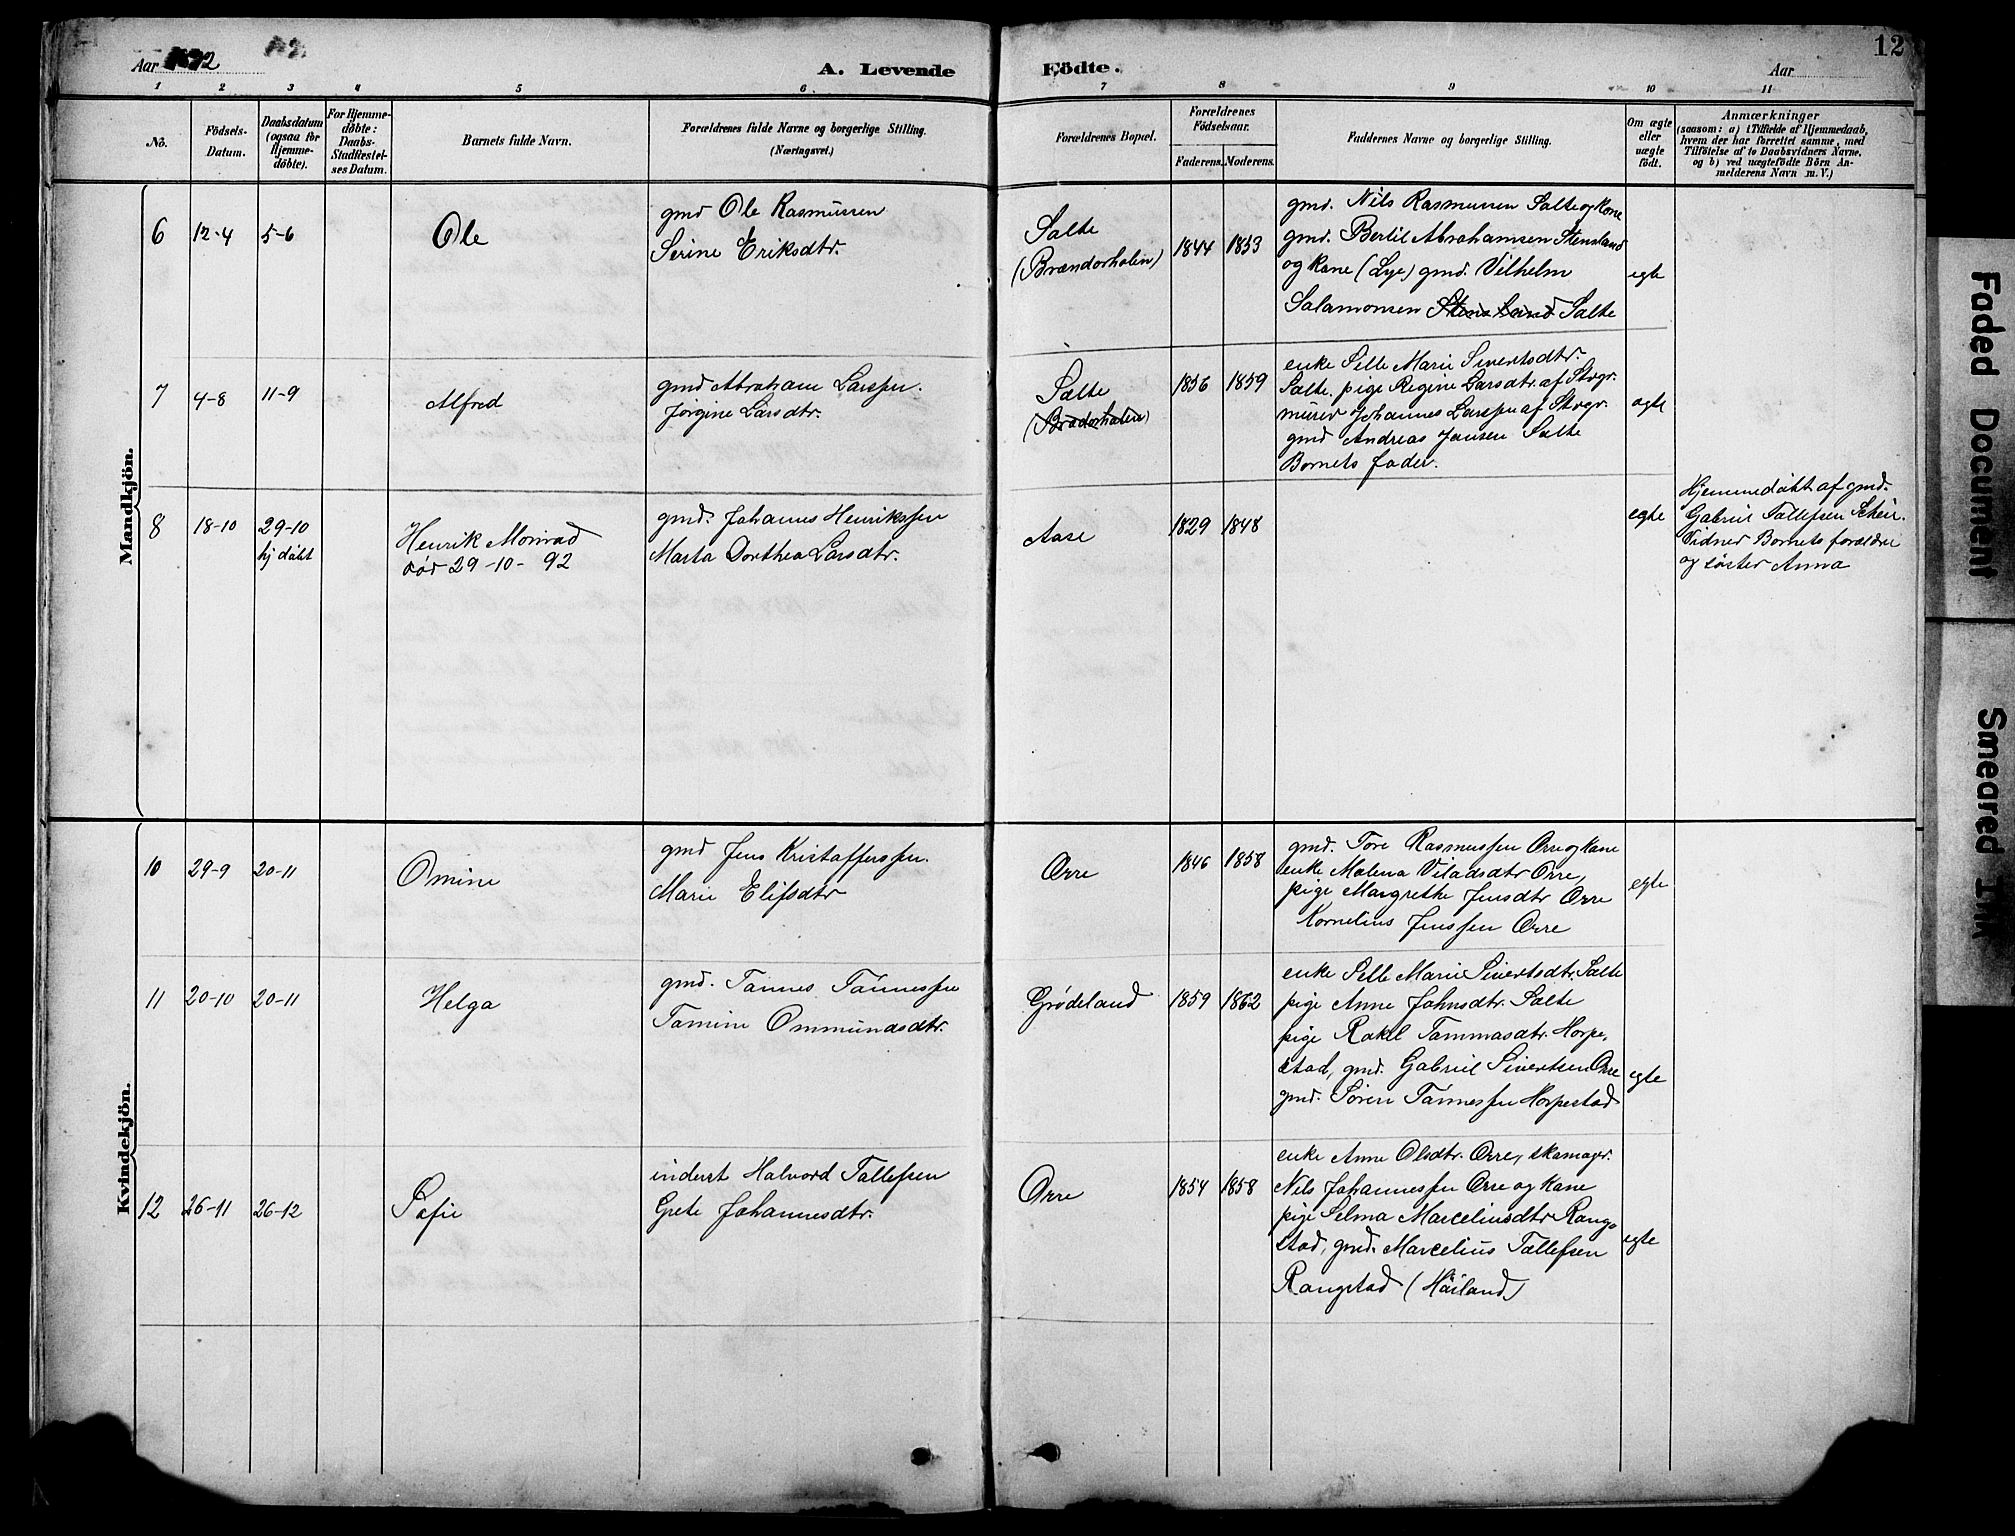 Aar 1892
A. Levende Födte.
Aar
12
1 2 3 4 5 6 7 8 9 10 11
No.
Födsels-
Datum.
Daabsdatum
(ogsaa for
Hjemme-
döbte).
For Hjemme-
döbte:
Daabs-
Stadfæstel-
ses Datum.
Barnets fulde Navn.
Forældrenes fulde Navne og borgerlige Stilling.
(Næringsvei.)
Forældrenes Bopæl.
Forældrenes
Födselsaar.
Faderens. Moderens.
Faddernes Navne og borgerlige Stilling.
Om ægte
eller
uægte
födt.
Anmærkninger
(saasom: a) i Tilfælde af Hjemmedaab,
hvem der har forrettet samme, med
Tilföielse af to Daabsvidners Navne,
og b) ved uægtefödte Börn An-
melderens Navn m. V.)
Mandkjön.
6 12-4 5-6 Ole
gmd Ole Rasmussen
Serine Eriksdtr.
Salte
(Brænderhalen)
1844 1853
gmd. Nils Rasmussen Salte og kone
gmd. Bertil Abrahamsen Stensland
og kone (Lye) gmd. Vilhelm
Salamonsen Stensland Salte
egte
7 4-8 11-9 Alfred
gmd Abraham Larssen.
Jørgine Larsdtr.
Salte
(Bradorhalen)
1856 1859
enke Sille Marie Sivertsdtr.
Salte. pige Regine Larsdtr. af Stvgr.
murer Johannes Larssen af Stvgr.
gmd Andreas Jansen Salte
Barnets fader.
egte
8 18-10 29-10
hj døbt
Henrik Monrad
død 29-10-92
gmd. Johannes Henrikssen
Marta Dorthea Larsdtr.
Aase
1829 1848
egte
Hjemmedøbt af gmd.
Gabriel Tallefsen
Vidner Barnets forældre
og søster Anna
Kvindekjön.
10 29-9 20-11 Omine
gmd Jens Kristofferssen.
Marie Elifsdtr
Orre
1846 1858
gmd. Tore Rasmussen Orre og kone
enke Malena Viladsdtr Orre,
pige Margrethe Jensdtr Orre
Kornelius Jenssen Orre
egte
11 20-10 20-11 Helga
gmd. Tønnes Tønnessen
Tomine Ommundsdtr.
Grødeland
1859 1862
enke Sille Marie Sivertsdtr. Salte
pige Anne Johnsdtr. Salte
pige Rakel Tammasdtr. Horpe,
stad, gmd. Gabriel Sivertsen Orre
gmd. Sören Tønnessen Horpestad
egte
12 26-11 26-12 Sofie
inderst Halvord Tallefsen
Grete Johannesdtr.
Orre
1854 1858
enke Anne Olsdtr. Orre, skomager.
Nils Johannessen Orre og kone
pige Selma Marceliusdtr Rang-
stad, gmd. Marcelius Tallefsen
Rangstad (Høiland)
egte
Faded Document
Smeared Ink